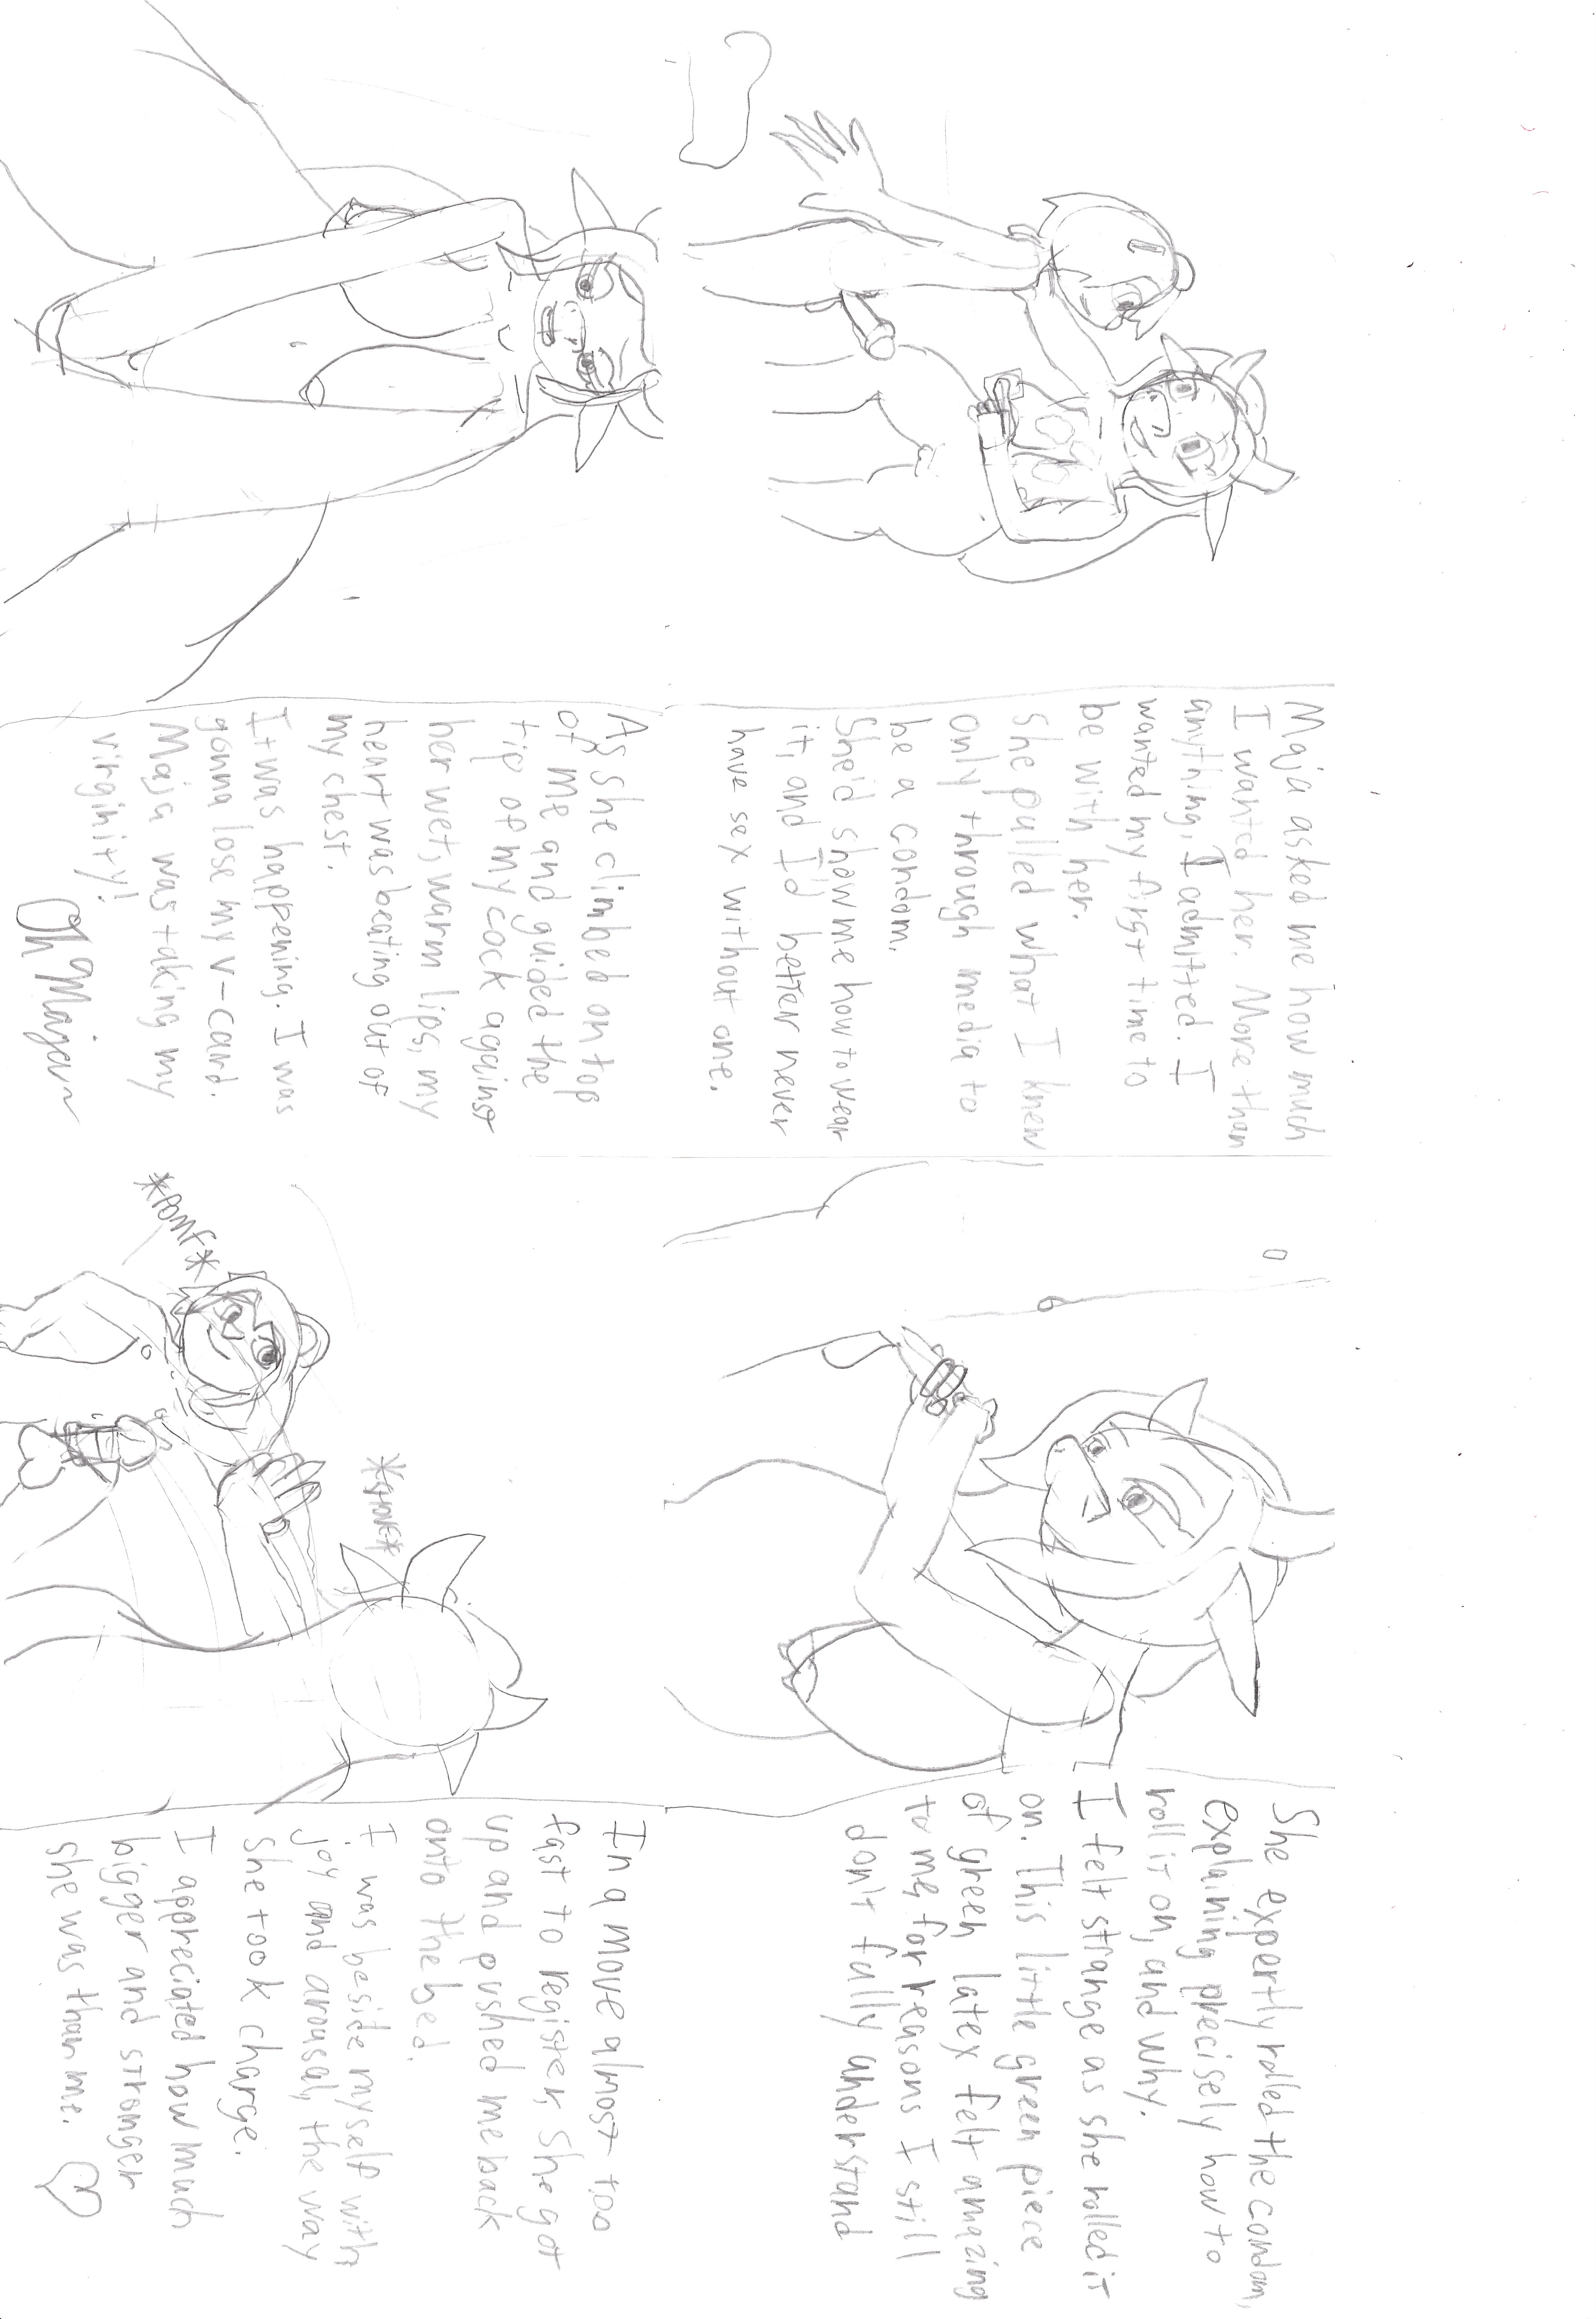 Maja asked me how much
I wanted her. More than
anything, I admitted. I
wanted my first time to
be with her.
She pulled what I knew
only through media to
be a condom.
She'd show me how to wear
it, and I'd better never
have sex without one.
She expertly rolled the condom,
explaining precisely how to
roll it on, and why.
I felt strange as she rolled it
on. This little green piece
of green latex felt amazing
to me, for reasons I still
don't fully understand
As she climbed on top
of me and guided the
tip of my cock against
her wet, warm lips, my
heart was beating out of
my chest.
It was happening. I was
gonna lose my v-card.
Maja was taking my
virginity!
Oh Maja~
*POMF*
*SHOVE*
In a move almost too
fast to register, she got
up and pushed me back
onto the bed.
I was beside myself with
joy and arousal, the way
she took charge.
I appreciated how much
bigger and stronger
she was than me.